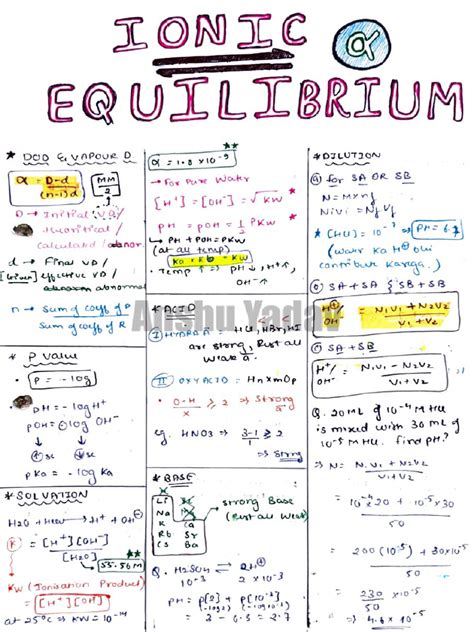 IONIC
EQUILIBRIUM
* DOD & VAPOUR D
α = D-d
(n-1)d
MM
2
D → Initial VD/
theoritical/
Calculated/
d → Final VD/
effective VD/
abnormal
n → Sum of coeff of P
Sum of coeff of R
* P Value
P = -log
pH = -log H⁺
pOH = -log OH⁻
pKa = -log Ka
* SOLVATION
H2O + H2O → H⁺ + OH⁻
K = [H⁺][OH⁻]
[H2O]
55.56 M
Kw (Ionisation Product)
= [H⁺][OH⁻]
at 25°C ⇒ KW = 10⁻¹⁴
α = 1.8 × 10⁻⁹
→ For Pure Water
[H⁺] = [OH⁻] = √KW
PH = POH = 1/2 PKw
PH + POH = PKW
(at all temp)
Ka × Kb = Kw
Temp ↑ ⇒ PH ↓, H⁺ ↑,
OH⁻ ↑
Anshu Yadav
* ACID
I HYDRA A → HCl, HBr, HI
are strong, Rest all
weak A.
II OXYACID → HnXmOp
O-H
X
≥ 2 ⇒ Strong
eg. HNO3 ⇒ 3-1
1
≥ 2
⇒ Strong
* BASE
Li
Na
K Ca
Rb Sr
Cs Ba
→ Strong Base
(Rest all Weak)
Q. H2SO4 ⇌ 2H⁺
10⁻³ 2 × 10⁻³
PH = P[2] + P[10⁻³]
(-log2) (-log10⁻³)
= 2 - 0.3 = 2.7
* DILUTION
a) for SA OR SB
N = M × nf
NiVi = NfVf
* [HCl] = 10⁻³ ⇒ PH = 6.
SA + SA & SB + SB
H⁺
OH⁻
= N1V1 + N2V2
V1 + V2
SA + SB
H⁺/
OH⁻
= N1V1 - N2V2
V1 + V2
Q. 20ML of 10⁻⁴ M HCl
is mixed with 30 ML of
10⁻⁵ M HCl. find PH?
⇒ N1V1 + N2V2
V1 + V2
= 10⁻⁴ 20 + 10⁻⁵ × 30
50
= 200 (10⁻⁵) + 30 × 10⁻⁵
50
= 230 × 10⁻⁵
50
⇒ 4.6 × 10⁻⁵